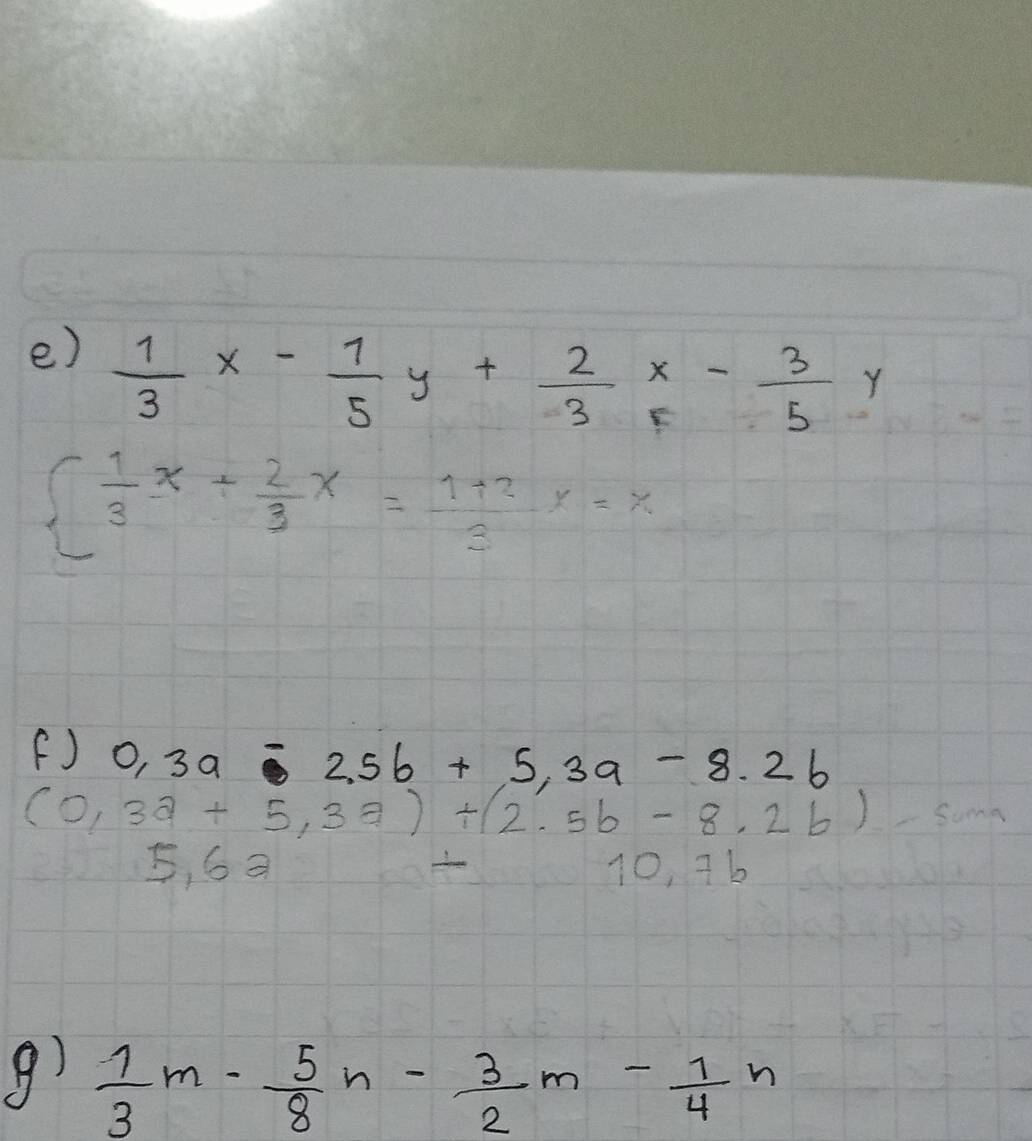 e) 1/3 x - 1/5 y + 2/3 x - 3/5 y
{ 1/3 x + 2/3 x = 1+2/3 x = x
f) 0,3a - 2.5b + 5,3a - 8.2b
(0,3a + 5,3a) + (2.5b - 8.2b) - suma
5,6a + 10,7b
g) 1/3 m - 5/8 n - 3/2 m - 1/4 n